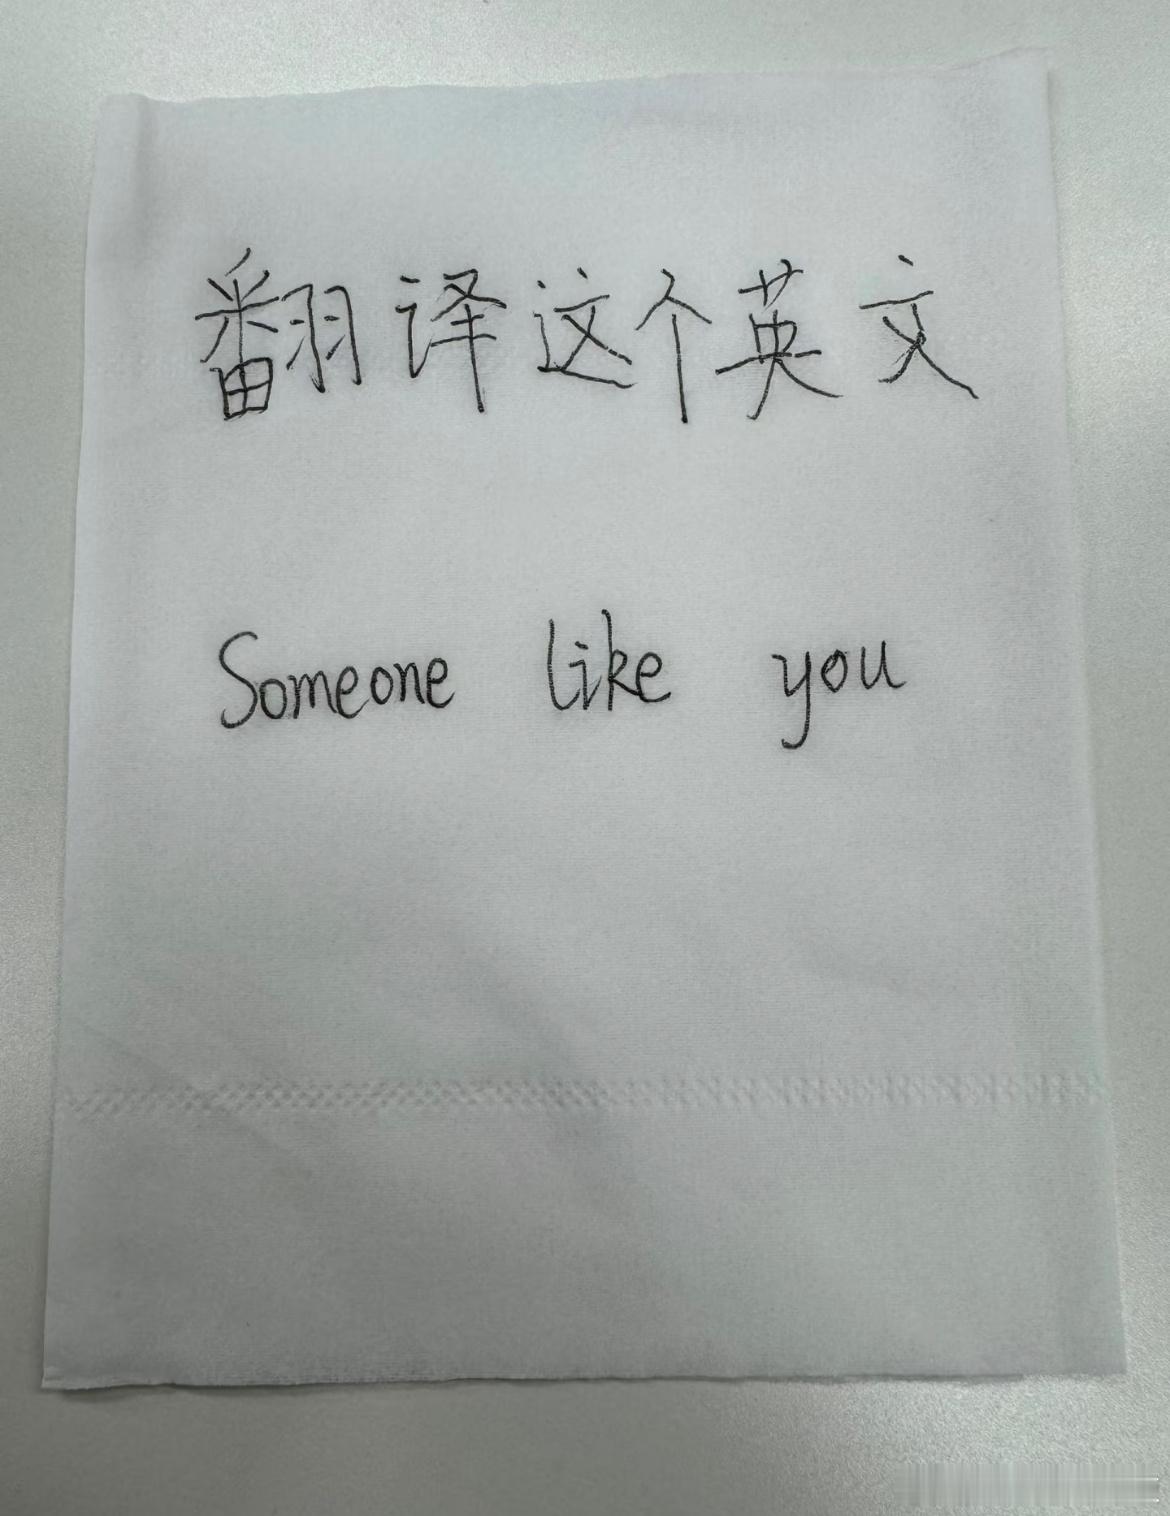 翻译这个英文
Someone like you